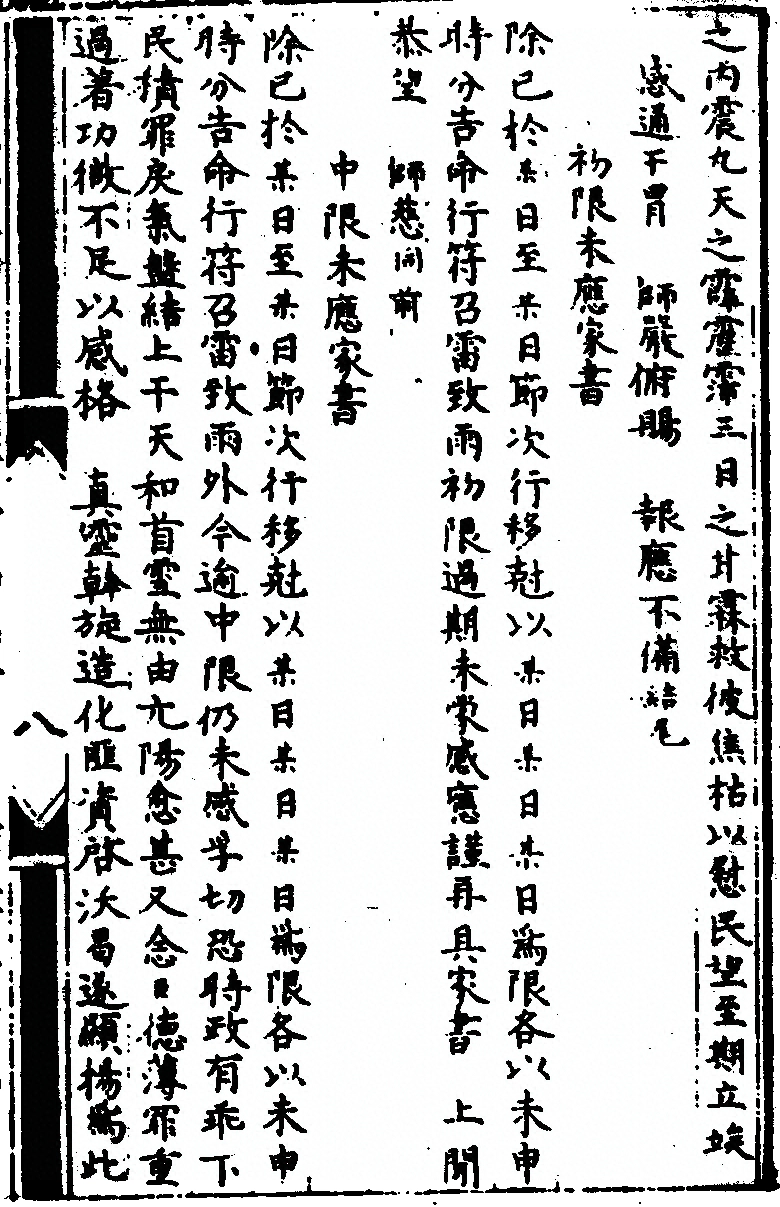 之内震九天之霹靂霈三日之甘霖救彼焦枯以慰民望至期立竢
感通干冒　師嚴俯賜　報應不備結尾
初限未應家書
除已於某日至某日節次行移尅以某日某日某日爲限各以未申
時分告命行符召雷致雨初限過期未蒙感應謹再具家書　上聞
恭望　師慈同前
中限未應家書
除已於某日至某日節次行移尅以某日某日某日爲限各以未申
時分告命行符召雷致雨外今逾中限仍未感孚切恐時政有乖下
民積罪戾氣盤結上干天和首靈無由亢陽愈甚又念臣德薄罪重
過著功微不足以感格　真靈斡旋造化匪資啓沃曷遂顯揚爲此
八